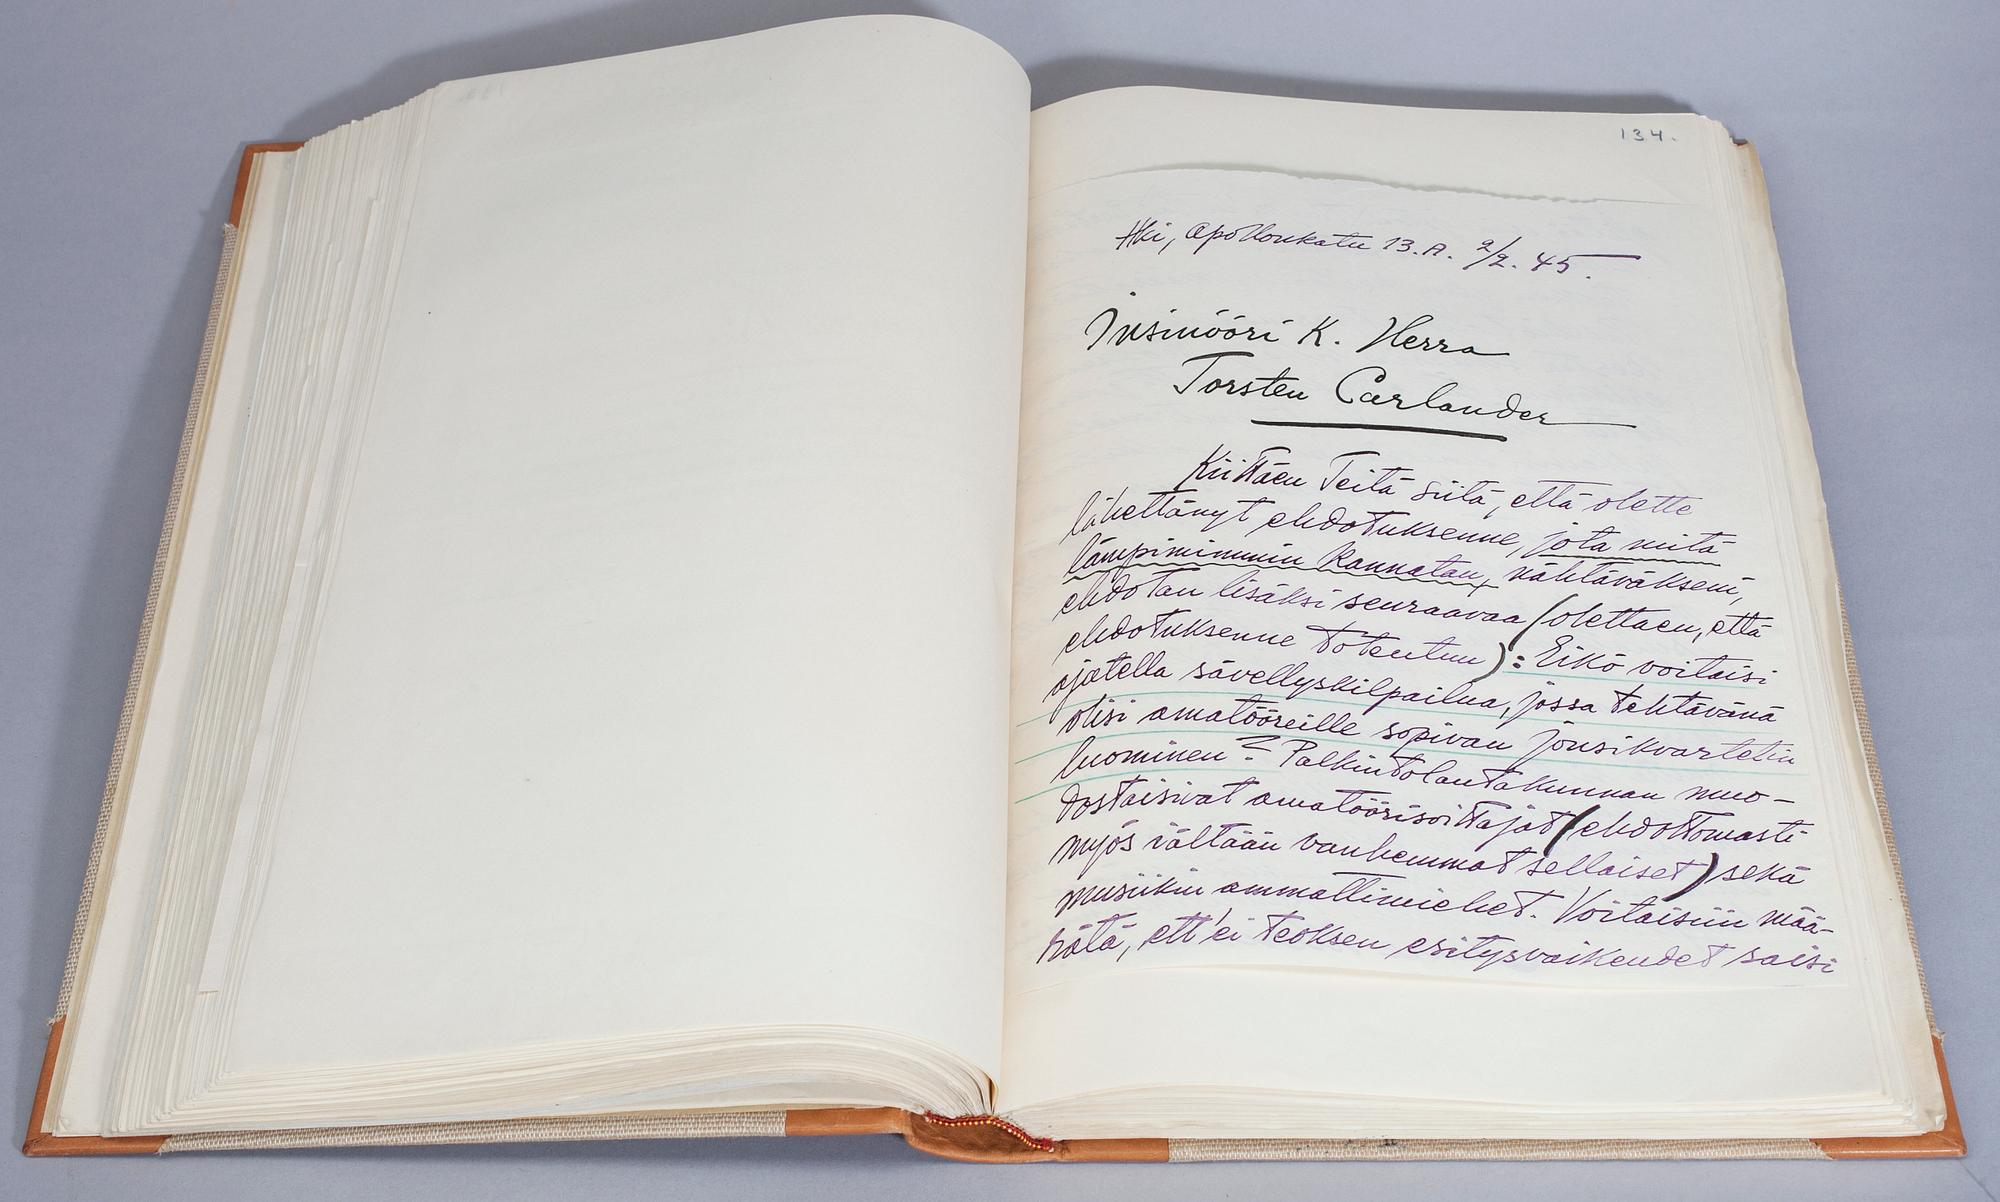 134.
Hki, Apollonkatu 13.A. 9/2. 45.
Insinööri K. Herra
Torsten Carlander
Kiittäen Teitä siitä, että olette
lähettänyt ehdotuksenne, jota mitä
lämpimimmin kannatan, nähtäväkseni,
ehdotan lisäksi seuraavaa (olettaen, että
ehdotuksenne toteutuu): Eikö voitaisi
ajatella sävellyskilpailua, jossa tehtävänä
olisi amatööreille sopivan jousikvartetin
luominen? Palkintolautakunnan muo-
dostaisivat amatöörisoittajat (ehdottomasti
myös iältään vanhemmat sellaiset) sekä
musiikin ammattimiehet. Voitaisiin mää-
rätä, ett'ei teoksen esitysvaikeudet saisi